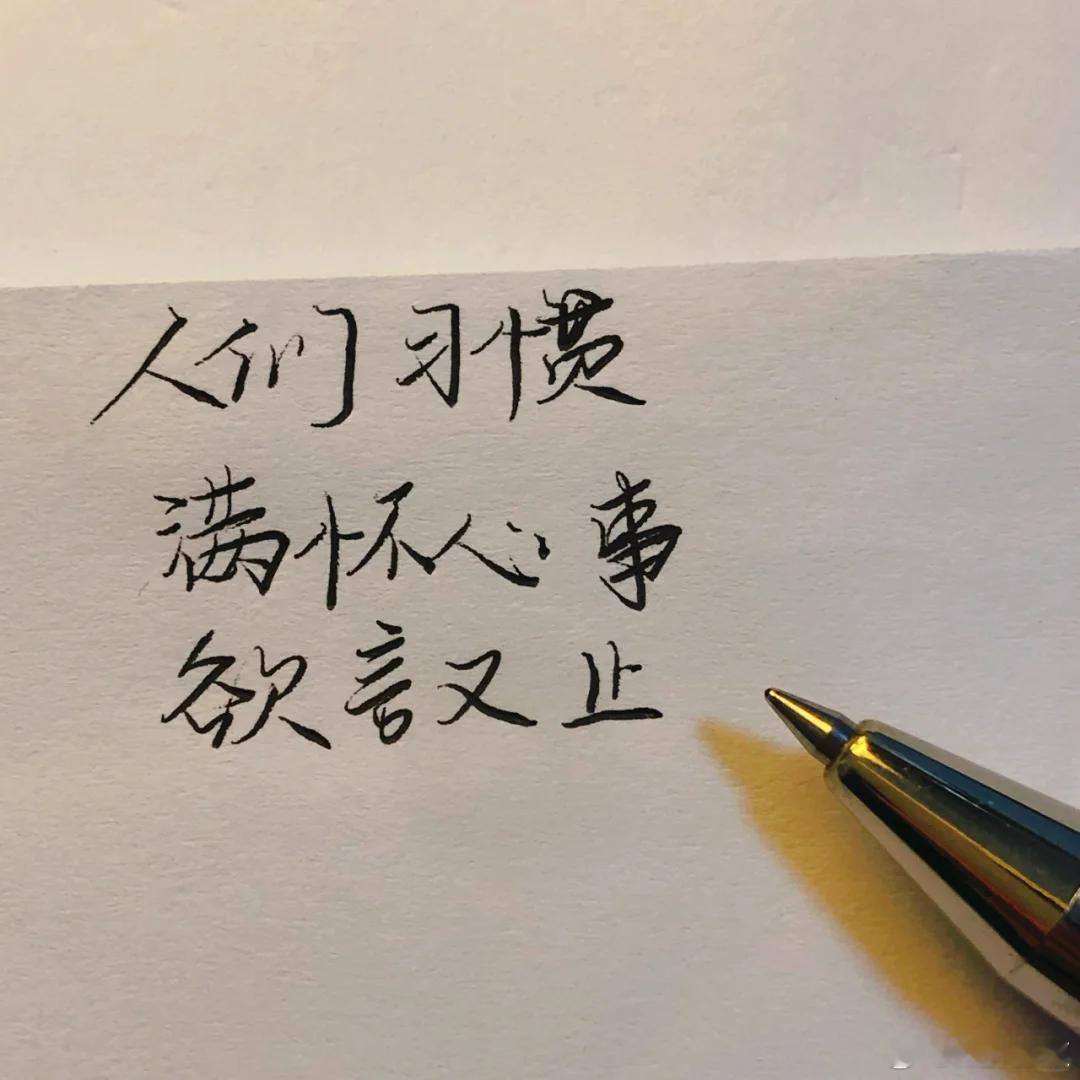 人们习惯
满怀心事
欲言又止